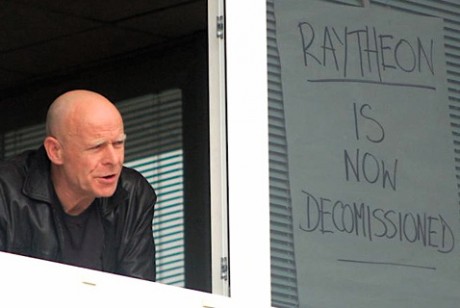 RAYTHEON
IS
NOW
DECOMISSIONED